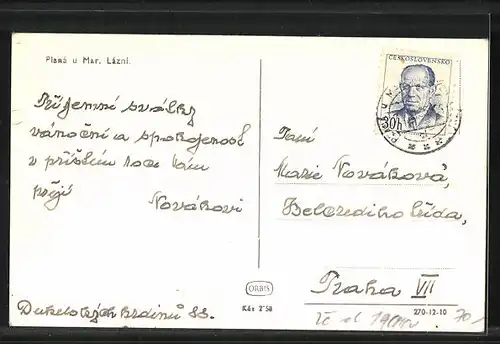 Planá u Mar. Lázní.
ČESKOSLOVENSKO
Příjemné svátky
vánoční a spokojenost
v příštím roce Vám
přejí
Novákovi
Dukelských hrdinů 33.
Paní
Marie Nováková,
Belcrediho třída,
Praha VII
ORBIS
Kčs 2˙58
270-12-10
70,-